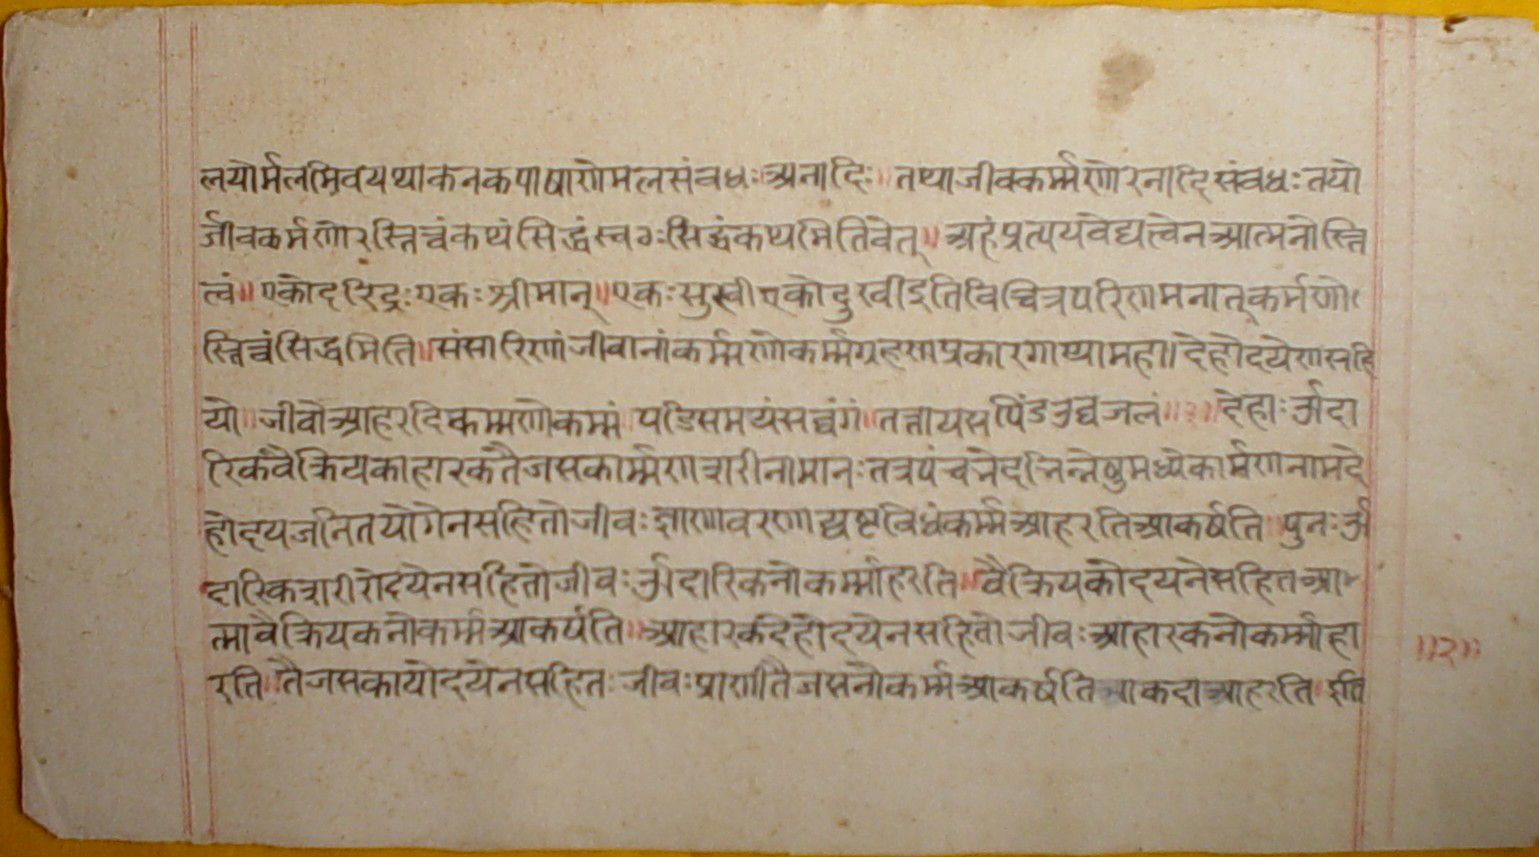 लयोर्मलमिवयथाकनकपाषाणेमलसंबधःअनादिः॥तथाजीवकर्म्मणोरनादिसंबधःतयो
र्जीवकर्मणोरस्तित्वंकथंसिद्धंस्वतःसिद्धंकथमितिचेत्॥अहंप्रत्ययवेद्यत्वेनआत्मनोस्ति
त्वं॥एकोदरिद्रःएकःश्रीमान्॥एकःसुखीएकोदुखीइतिविचित्रपरिणमनात्कर्मणो
स्तित्वंसिद्धमिति॥संसारिणांजीवानांकर्म्मणोकर्म्मग्रहणप्रकारगाथामहा॥देहोदयेणसहि
यो॥जीवोआहरदिकम्मणोकम्मं॥पडिसमयंसव्वंगं॥तत्तायसपिंडउव्वजलं॥३॥देहाःऔदा
रिकवैक्रियकाहारकतैजसकार्म्मणशरीनामानःतत्रपंचभेदभिन्नेषुमध्येकार्मणनामदे
होदयजनितयोगेनसहितोजीवःज्ञाणावरणाद्यष्टविधंकर्म्मआहरतिआकर्षति॥पुनःऔ
दारिकशरीरोदयेनसहितोजीवःऔदारिकनोकर्म्माहरति॥वैक्रियकोदयनेसहितआ
त्मावैक्रियकनोकर्म्मआकर्षति॥आहारकदेहोदयेनसहितोजीवःआहारकनोकर्म्माहा
रति॥तैजसकायोदयेनसहितःजीवःप्राणीतैजसनोकर्म्मआकर्षतिआकदाआहरति॥इति
॥२॥